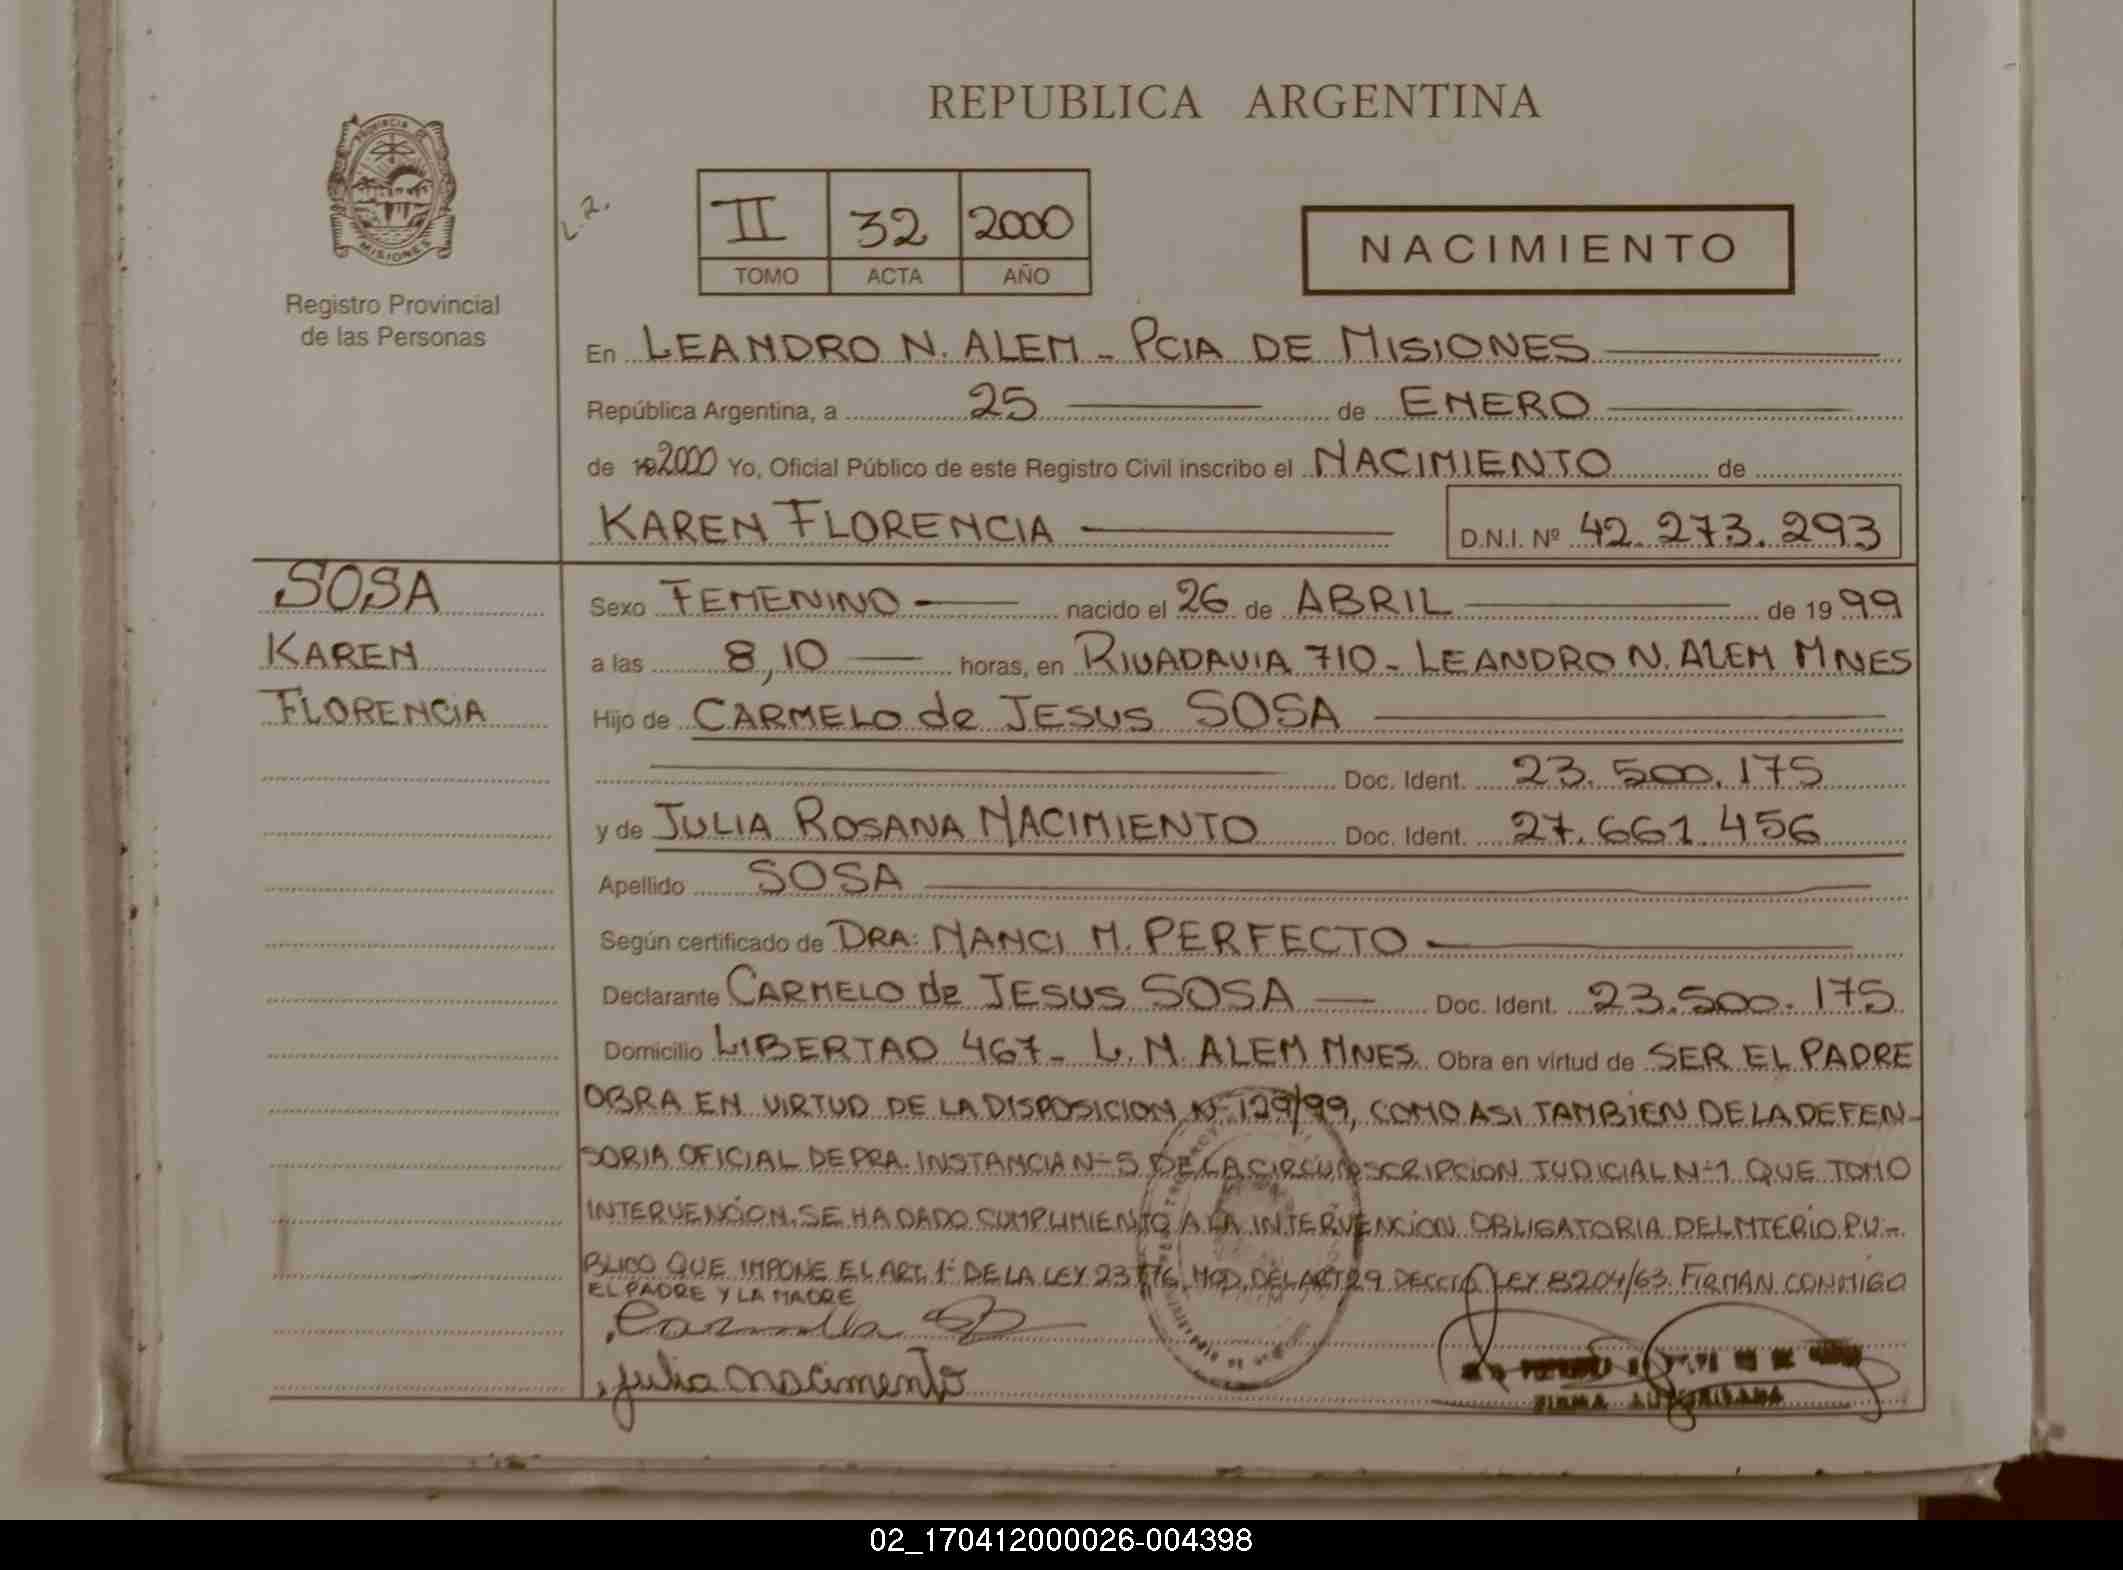 REPUBLICA ARGENTINA
PROVINCIA DE
MISIONES
Registro Provincial
de las Personas
L.2.
II 32 2000
TOMO ACTA AÑO
NACIMIENTO
En LEANDRO N. ALEM - PCIA DE MISIONES
República Argentina, a 25 de ENERO
de 192000 Yo, Oficial Público de este Registro Civil inscribo el NACIMIENTO de
KAREN FLORENCIA D.N.I. Nº 42.273.293
SOSA
KAREN
FLORENCIA
Sexo FEMENINO nacido el 26 de ABRIL de 1999
a las 8,10 horas, en RIVADAVIA 710 - LEANDRO N. ALEM MNES
Hijo de CARMELO de JESUS SOSA
Doc. Ident. 23.500.175
y de JULIA ROSANA NACIMIENTO Doc. Ident. 27.661.456
Apellido SOSA
Según certificado de DRA: NANCI M. PERFECTO
Declarante CARMELO de JESUS SOSA Doc. Ident. 23.500.175
Domicilio LIBERTAD 467 - L. N. ALEM MNES. Obra en virtud de SER EL PADRE
OBRA EN VIRTUD DE LA DISPOSICION Nº 129/99, COMO ASI TAMBIEN DE LA DEFEN-
SORIA OFICIAL DE PRA. INSTANCIA Nº 5 DE LA CIRCUNSCRIPCION JUDICIAL Nº 1 QUE TOMO
INTERVENCION. SE HA DADO CUMPLIMIENTO A LA INTERVENCION OBLIGATORIA DEL MTERIO PU-
BLICO QUE IMPONE EL ART. 1º DE LA LEY 23776, MOD. DEL ART 29 LEY 8204/63. FIRMAN CONMIGO
EL PADRE Y LA MADRE
julia nacimento
FIRMA AUTORIZADA
02_170412000026-004398